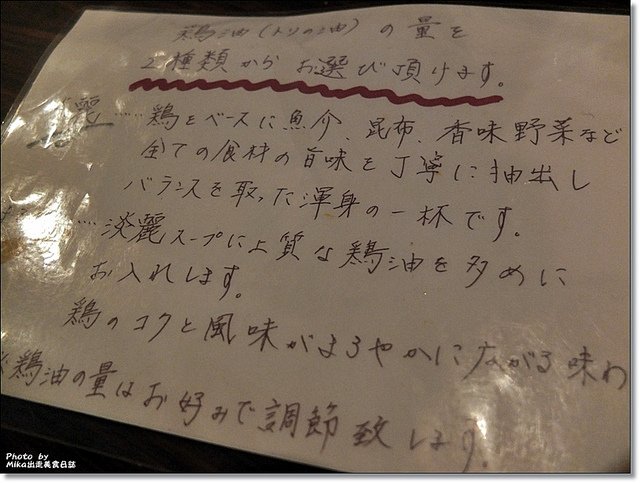 鶏油(トリの油)の量を
2種類からお選び頂けます。
麗……鶏をベースに魚介、昆布、香味野菜など
全ての食材の旨味を丁寧に抽出し
バランスを取った渾身の一杯です。
……淡麗スープに上質な鶏油を多めに
お入れします。
鶏のコクと風味がまろやかに広がる味わ
※鶏油の量はお好みで調節致します。
Photo by
Mika出走美食日誌